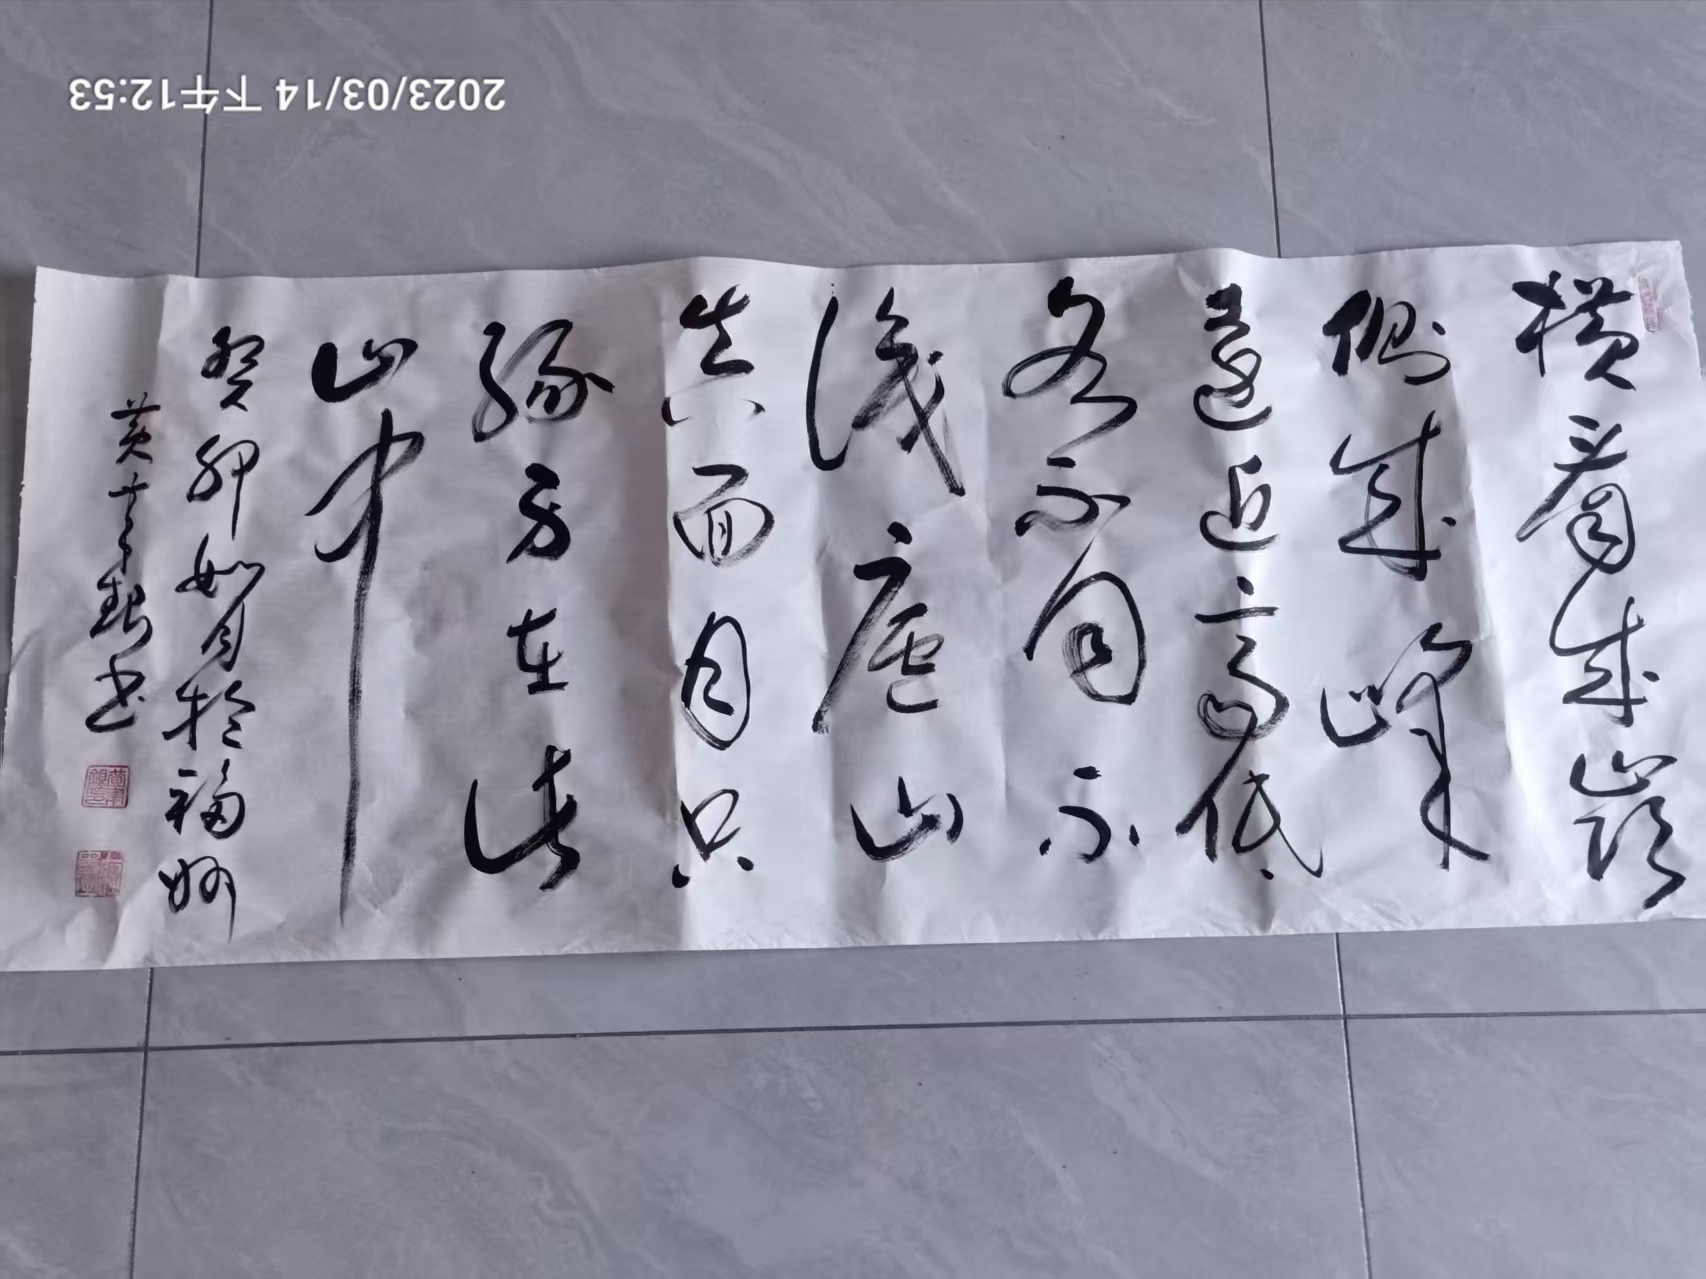 2023/03/14 下午12:53
横看成嶺
側成峰
遠近高低
各不同不
識廬山
真面目只
緣身在此
山中
癸卯如月於福州
黄 书